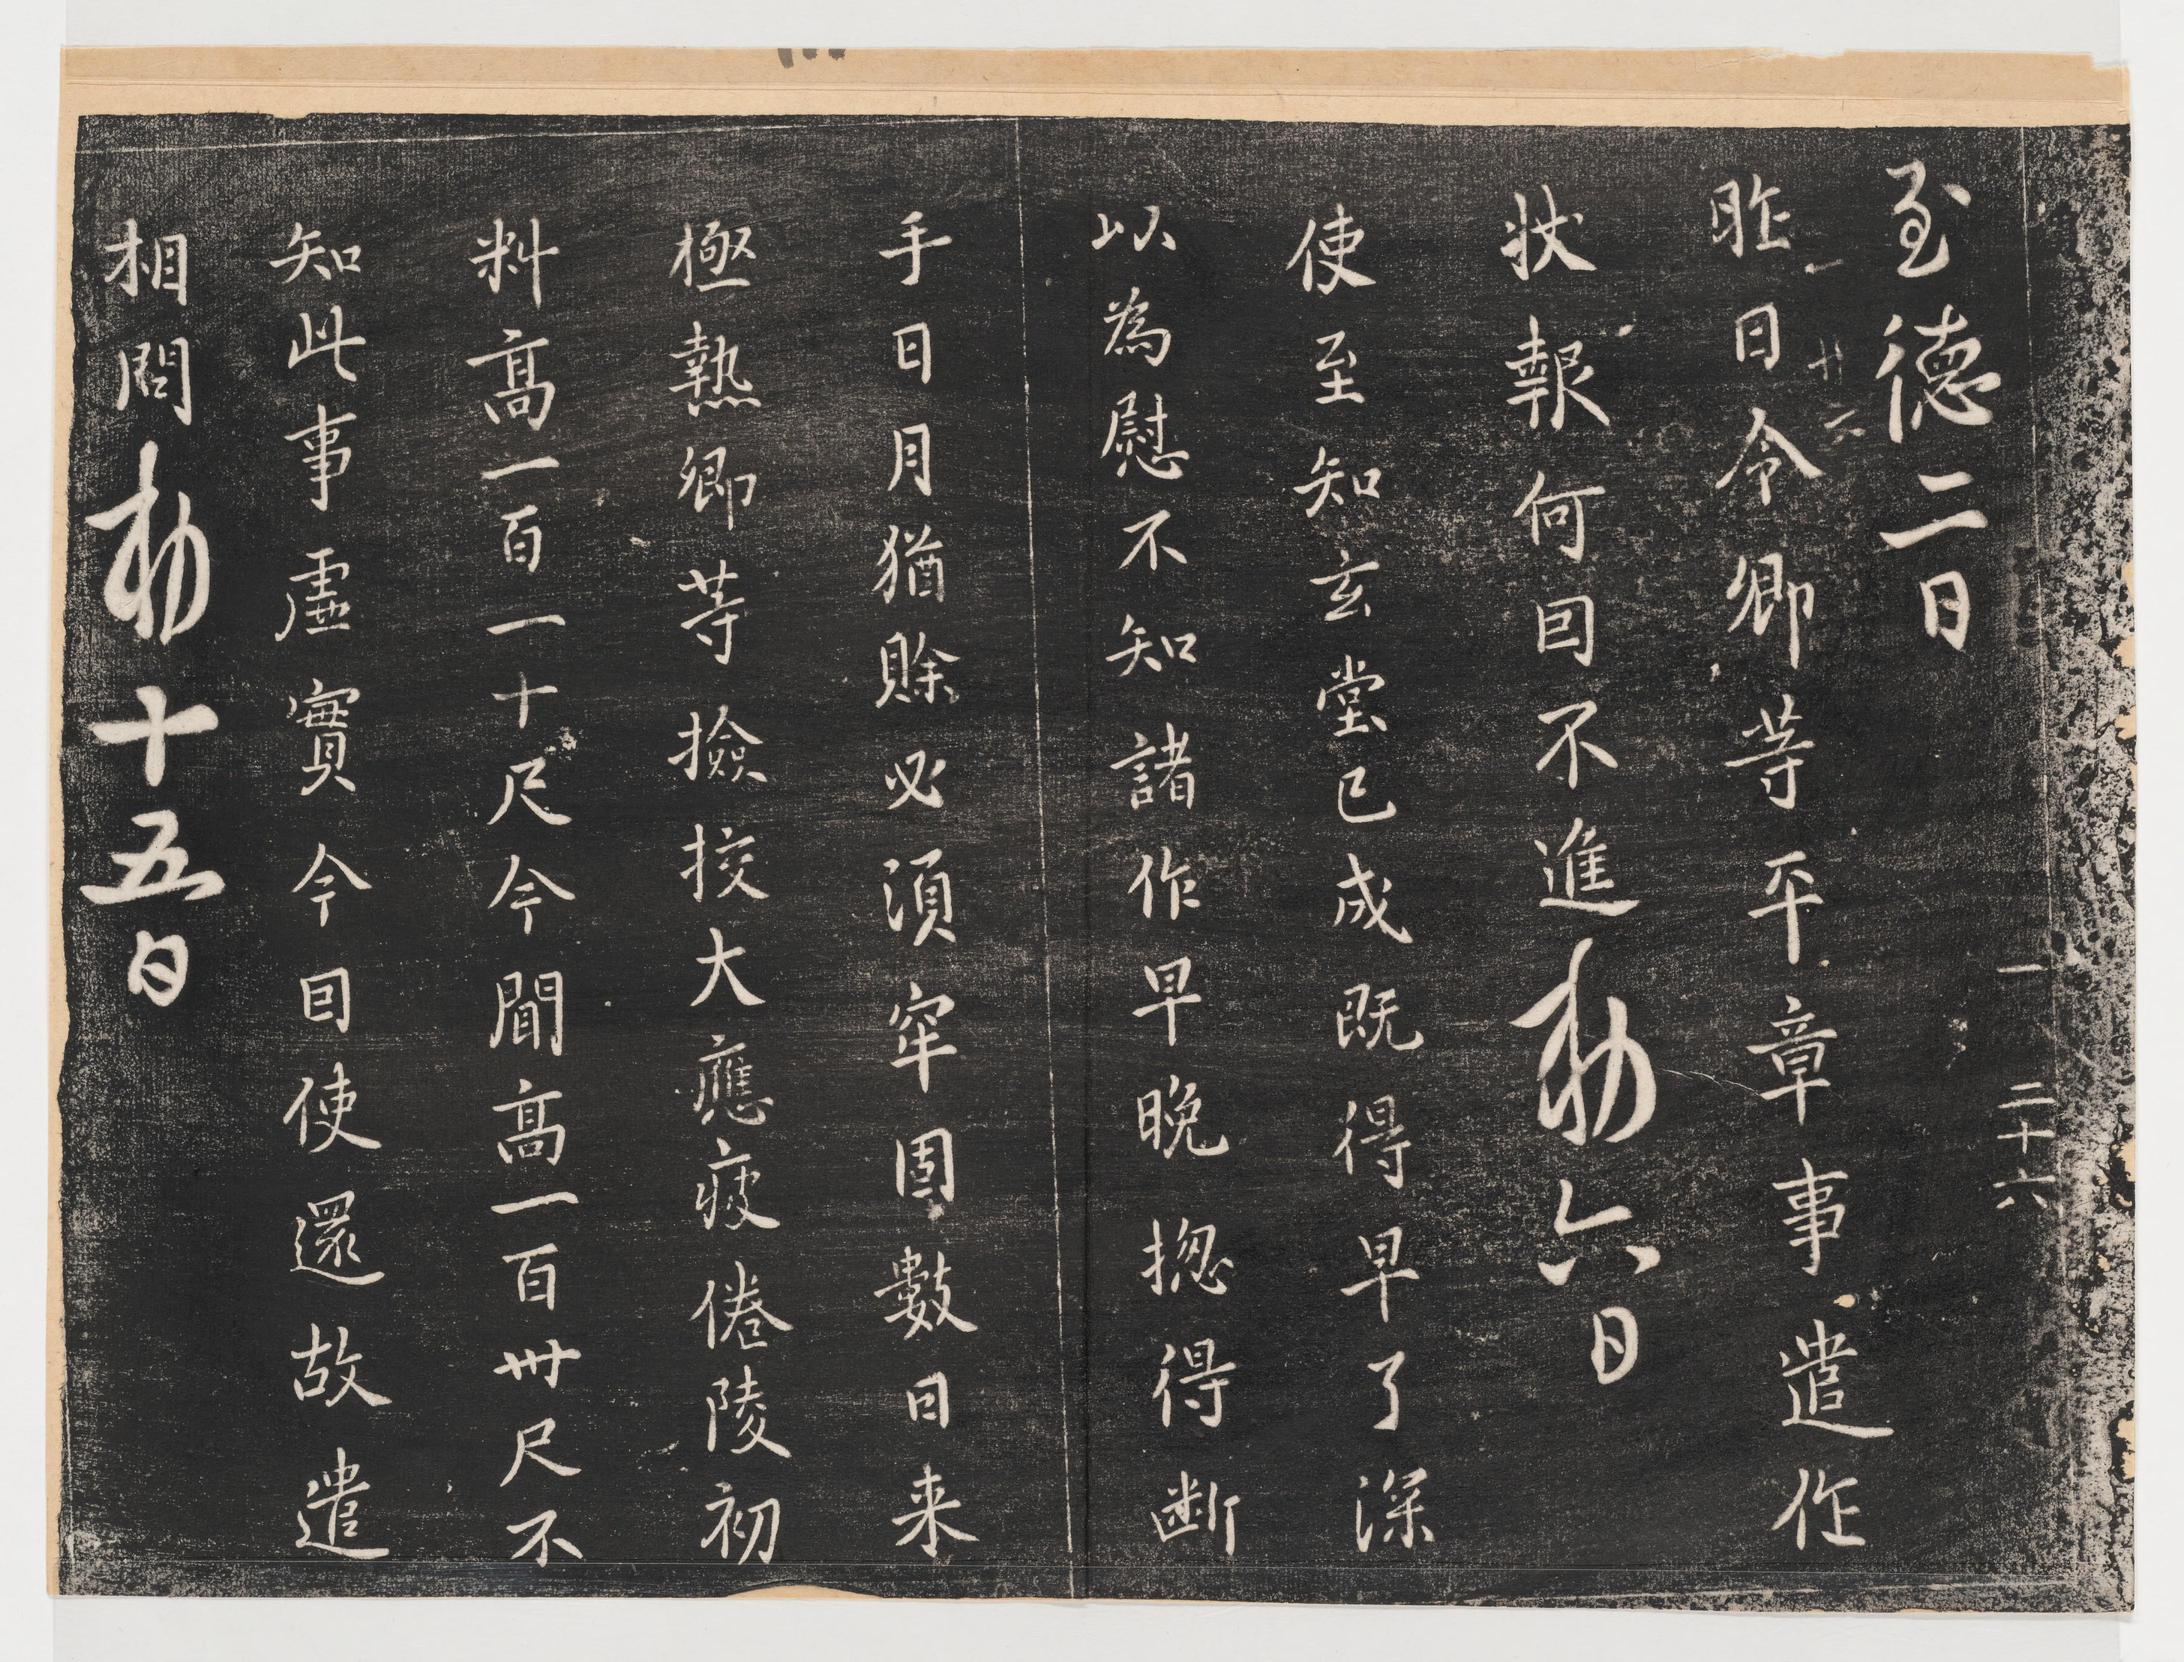 一 二十六
至德二日
一 廿六
昨日令卿等平章事遣作
狀報何囙不進勅六日
使至知玄堂已成既得早了深
以為慰不知諸作早晚揔得断
手日月猶賒必須牢固數日来
極熱卿等撿挍大應疲倦陵初
料高一百一十尺今聞高一百卅尺不
知此事虛實今囙使還故遣
相問勅十五日